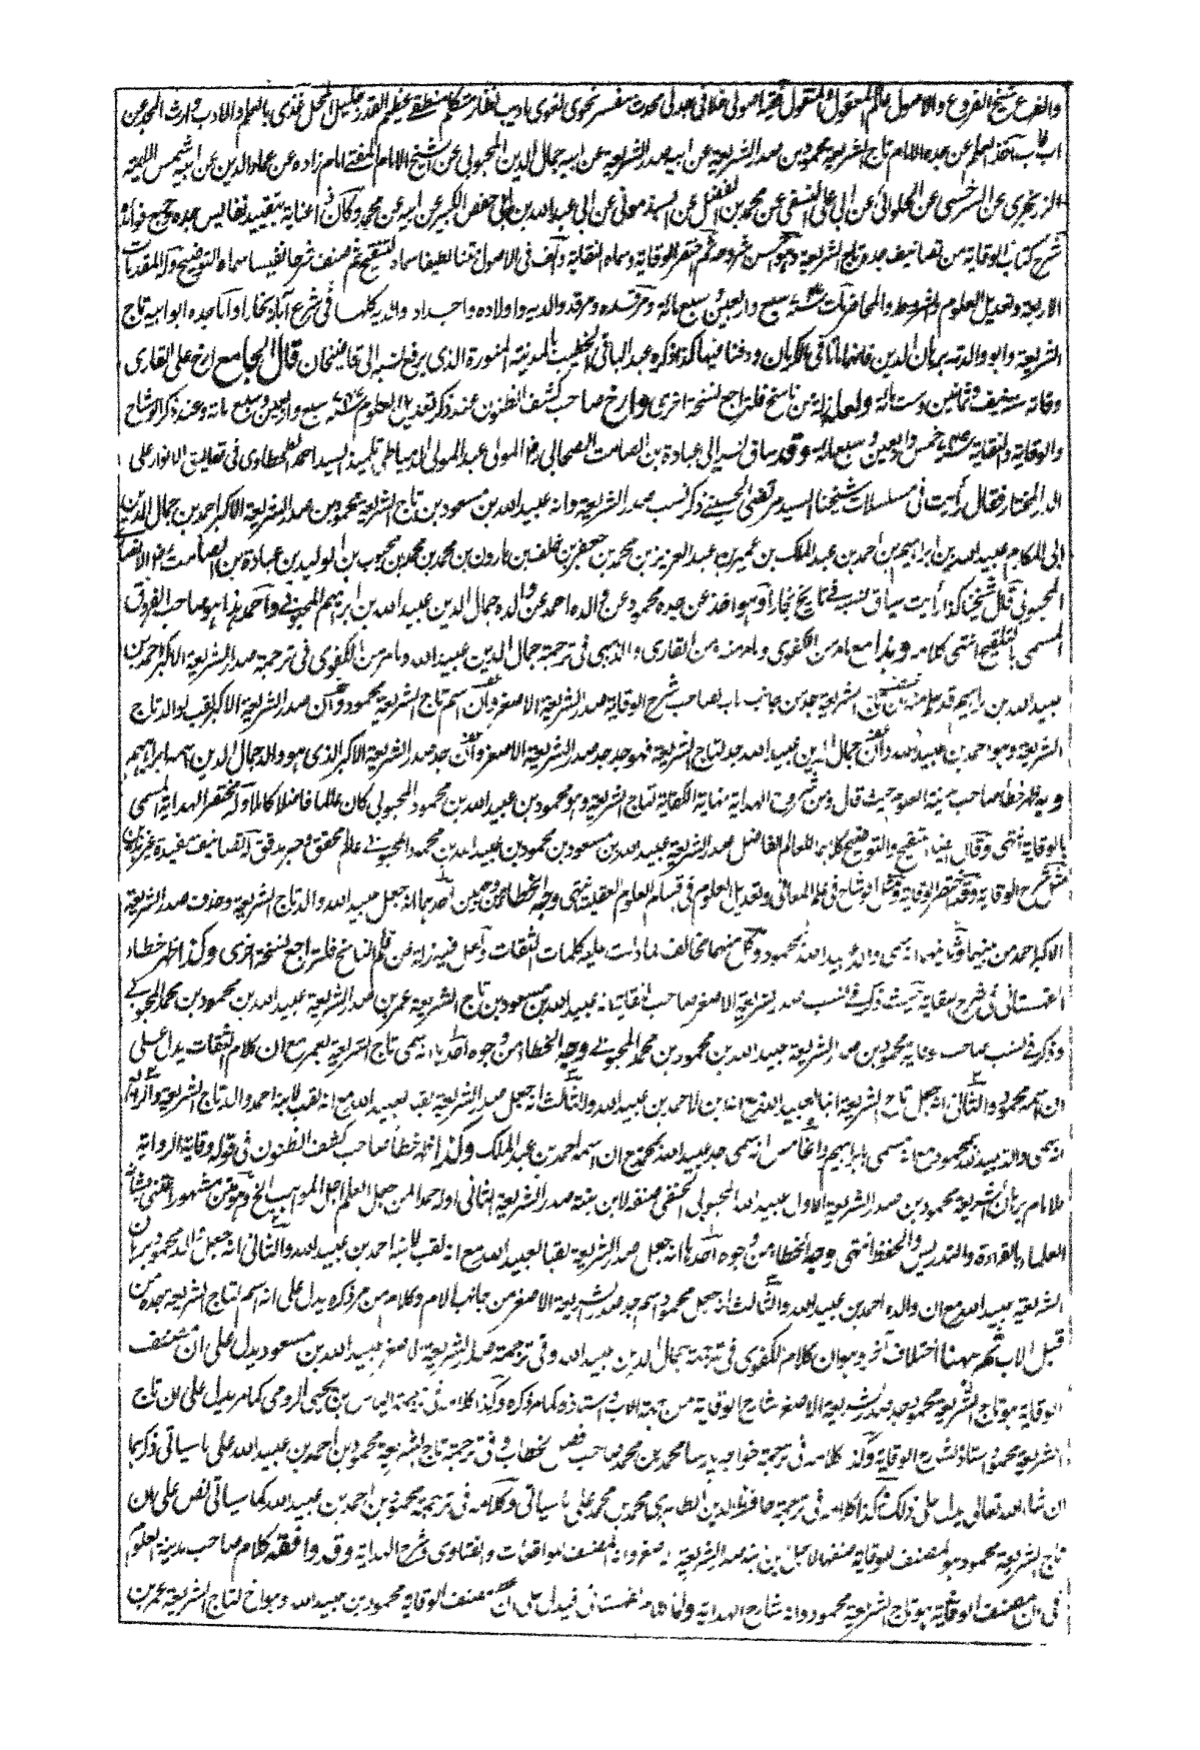 والفرع شيخ الفروع والاصول عالم المعقول والمنقول فقيه اصولى خلافى جدلى محدث مفسر نحوى لغوى اديب نظار متكلم منطقى عظيم القدر جليل المحل غذى بالعلم والادب وارث المجد عن
اب فاب اخذ العلم عن جده الامام تاج الشريعة محمود بن صدر الشريعة عن ابيه صدر الشريعة عن ابيه جمال الدين المحبوبى عن الشيخ الامام المفتى امام زاده عن عماد الدين عن ابيه شمس الائمة
الزرنجرى عن السرخسى عن الحلوانى عن ابى على النسفى عن محمد بن الفضل عن السبذمونى عن ابى عبد الله بن ابى حفص الكبير عن ابيه عن محمد وكان ذا عناية بتقييد نفائس جده وجمع فوائده
شرح كتاب الوقاية من تصانيف جده تاج الشريعة وهو احسن شروحه ثم اختصر الوقاية وسماه النقاية والف فى الاصول متنا لطيفا سماه التنقيح ثم صنف شرحا نفيسا سماه التوضيح وله المقدمات
الاربعة وتعديل العلوم والشروط والمحاضر مات سنة سبع واربعين وسبع مائة ومرقده ومرقد والديه واولاده واجداد والديه كلها فى شرع آباد بخارا واما جده ابو ابيه تاج
الشريعة وابو والدته برهان الدين فانهما ماتا فى الكرمان ودفنا فيها كذا ذكره عبد الباقى الخطيب بالمدينة المنورة الذى يرفع نسبه الى قاضيخان قال الجامع ارخ على القارى
وفاته سنة نيف وثمانين وستمائة ولعله زلة من ناسخ فلتراجع نسخة اخرى وارخ صاحب كشف الظنون عند ذكر تعديل العلوم سنة سبع واربعين وسبع مائة وعند ذكر الوشاح
والوقاية والنقاية سنة خمس واربعين وسبع مائة وقد ساق نسبه الى عبادة بن الصامت الصحابى رض المولى عبد المولى الدمياطى تلميذ السيد احمد الطحطاوى فى تعاليق الانوار على
الدر المختار فقال رأيت فى مسلسلات شيخنا السيد مرتضى الحسينى ذكر نسب صدر الشريعة وانه عبيد الله بن مسعود بن تاج الشريعة محمود بن صدر الشريعة الاكبر احمد بن جمال الدين
ابى المكارم عبيد الله بن ابراهيم بن احمد بن عبد الملك بن عمير بن عبد العزيز بن محمد بن جعفر بن خلف بن هارون بن محمد بن محمد بن محبوب بن الوليد بن عبادة بن الصامت رض الانصارى
المحبوبى قال شيخنا كذا رأيت سياق نسبه فى تاريخ بخارا وهو اخذ عن جده محمود عن والده احمد عن والده جمال الدين عبيد الله بن ابراهيم المحبوبى واحمد هذا هو صاحب الفروق
المسمى بالتلقيح انتهى كلامه وهذا مع ما مر من الكفوى وما مر منه من القارى والذهبى فى ترجمة جمال الدين عبيد الله وما مر من الكفوى فى ترجمة صدر الشريعة الاكبر احمد بن
عبيد الله بن ابراهيم قد علم منه ان تاج الشريعة جد من جانب اب لصاحب شرح الوقاية صدر الشريعة الاصغر وان اسم تاج الشريعة محمود وان صدر الشريعة الاكبر لقب لوالد تاج
الشريعة وهو احمد بن عبيد الله وان جمال الدين عبيد الله جد لتاج الشريعة فهو جد جد صدر الشريعة الاصغر وان جد صدر الشريعة الاكبر الذى هو والد جمال الدين اسمه ابراهيم
وبه ظهر خطأ صاحب مدينة العلوم حيث قال ومن شروح الهداية نهاية الكفاية لتاج الشريعة وهو محمود بن عبيد الله بن محمود المحبوبى كان عالما فاضلا كاملا وله مختصر الهداية المسمى
بالوقاية انتهى وقال ايضا التنقيح والتوضيح كلاهما للعالم الفاضل صدر الشريعة عبيد الله بن مسعود بن محمود بن عبيد الله بن محمد المحبوبى عالم محقق وحبر مدقق له تصانيف مفيدة غير هذين
مثل شرح الوقاية ومختصر الوقاية ومثل الوشاح فى علم المعانى وتعديل العلوم فى اقسام العلوم العقلية انتهى وجه الخطأ من وجهين احدهما انه جعل عبيد الله والد تاج الشريعة وحذف صدر الشريعة
الاكبر احمد من بينهما وثانيهما انه سمى والد عبيد الله بمحمود وكل منهما مخالف لما دلت عليه كلمات الثقات ولعل فيه زلة من قلم الناسخ فلتراجع نسخة اخرى وكذا ظهر خطأ
القهستانى فى شرح النقاية حيث ذكر فى نسب صدر الشريعة الاصغر صاحب النقاية انه عبيد الله بن مسعود بن تاج الشريعة عمر بن صدر الشريعة عبيد الله بن محمود بن محمد المحبوبى
وذكر فى نسب صاحب الوقاية محمود بن صدر الشريعة عبيد الله بن محمود بن محمد المحبوبى وجه الخطأ من وجوه احدها انه سمى تاج الشريعة بعمر مع ان كلام الثقات يدل على
ان اسمه محمود والثانى انه جعل تاج الشريعة ابنا لعبيد الله مع انه ابن لاحمد بن عبيد الله والثالث انه جعل صدر الشريعة لقبا لعبيد الله مع انه لقب لابنه احمد والد تاج الشريعة والرابع
انه سمى والد عبيد الله بمحمود مع انه مسمى بابراهيم والخامس انه سمى جد عبيد الله بمحمد مع ان اسمه احمد بن عبد الملك وكذا ظهر خطأ صاحب كشف الظنون فى قوله وقاية الرواية
للامام برهان الشريعة محمود بن صدر الشريعة الاول عبيد الله المحبوبى الحنفى صنفه لابن بنته صدر الشريعة الثانى اوله احمد من جعل العلم اجل المواهب الخ وهو متن مشهور اعتنى بشأنه
العلماء بالقراءة والتدريس والحفظ انتهى وجه الخطأ من وجوه احدها انه جعل صدر الشريعة لقبا لعبيد الله مع انه لقب لابنه احمد بن عبيد الله والثانى انه جعل والد محمود برهان
الشريعة عبيد الله مع ان والده احمد بن عبيد الله والثالث انه جعل محمود اسم جد صدر الشريعة الاصغر من جانب الام وكلام من مر ذكره يدل على انه اسم لتاج الشريعة جده من
قبل الاب ثم ههنا اختلاف آخر وهو ان كلام الكفوى فى ترجمة جمال الدين عبيد الله وفى ترجمة صدر الشريعة الاصغر عبيد الله بن مسعود يدل على ان مصنف
الوقاية هو تاج الشريعة محمود جد صدر الشريعة الاصغر شارح الوقاية من جهة الاب واستاذه كما مر ذكره وكذا كلامه فى ترجمة الياس بن يحيى الرومى كما مر يدل على ان تاج
الشريعة محمود استاذ لشارح الوقاية وكذا كلامه فى ترجمة خواجه پارسا محمد بن محمد صاحب فصل الخطاب وفى ترجمة تاج الشريعة محمود بن احمد بن عبيد الله على ما سيأتى ذكرهما
ان شاء الله تعالى يدل على ذلك وكذا كلامه فى ترجمة حافظ الدين الطاهرى محمد بن محمد على ما سيأتى وكلامه فى ترجمة محمود بن احمد بن عبيد الله كما سيأتى نص على ان
تاج الشريعة محمود هو المصنف للوقاية صنفها لاجل ابن ابنه صدر الشريعة الاصغر وانه المصنف للواقعات والفتاوى وشرح الهداية وقد وافقه كلام صاحب مدينة العلوم
فى ان مصنف الوقاية هو تاج الشريعة محمود وانه شارح الهداية واما كلام القهستانى فيدل على ان مصنف الوقاية محمود بن عبيد الله وهو اخ لتاج الشريعة عمر بن